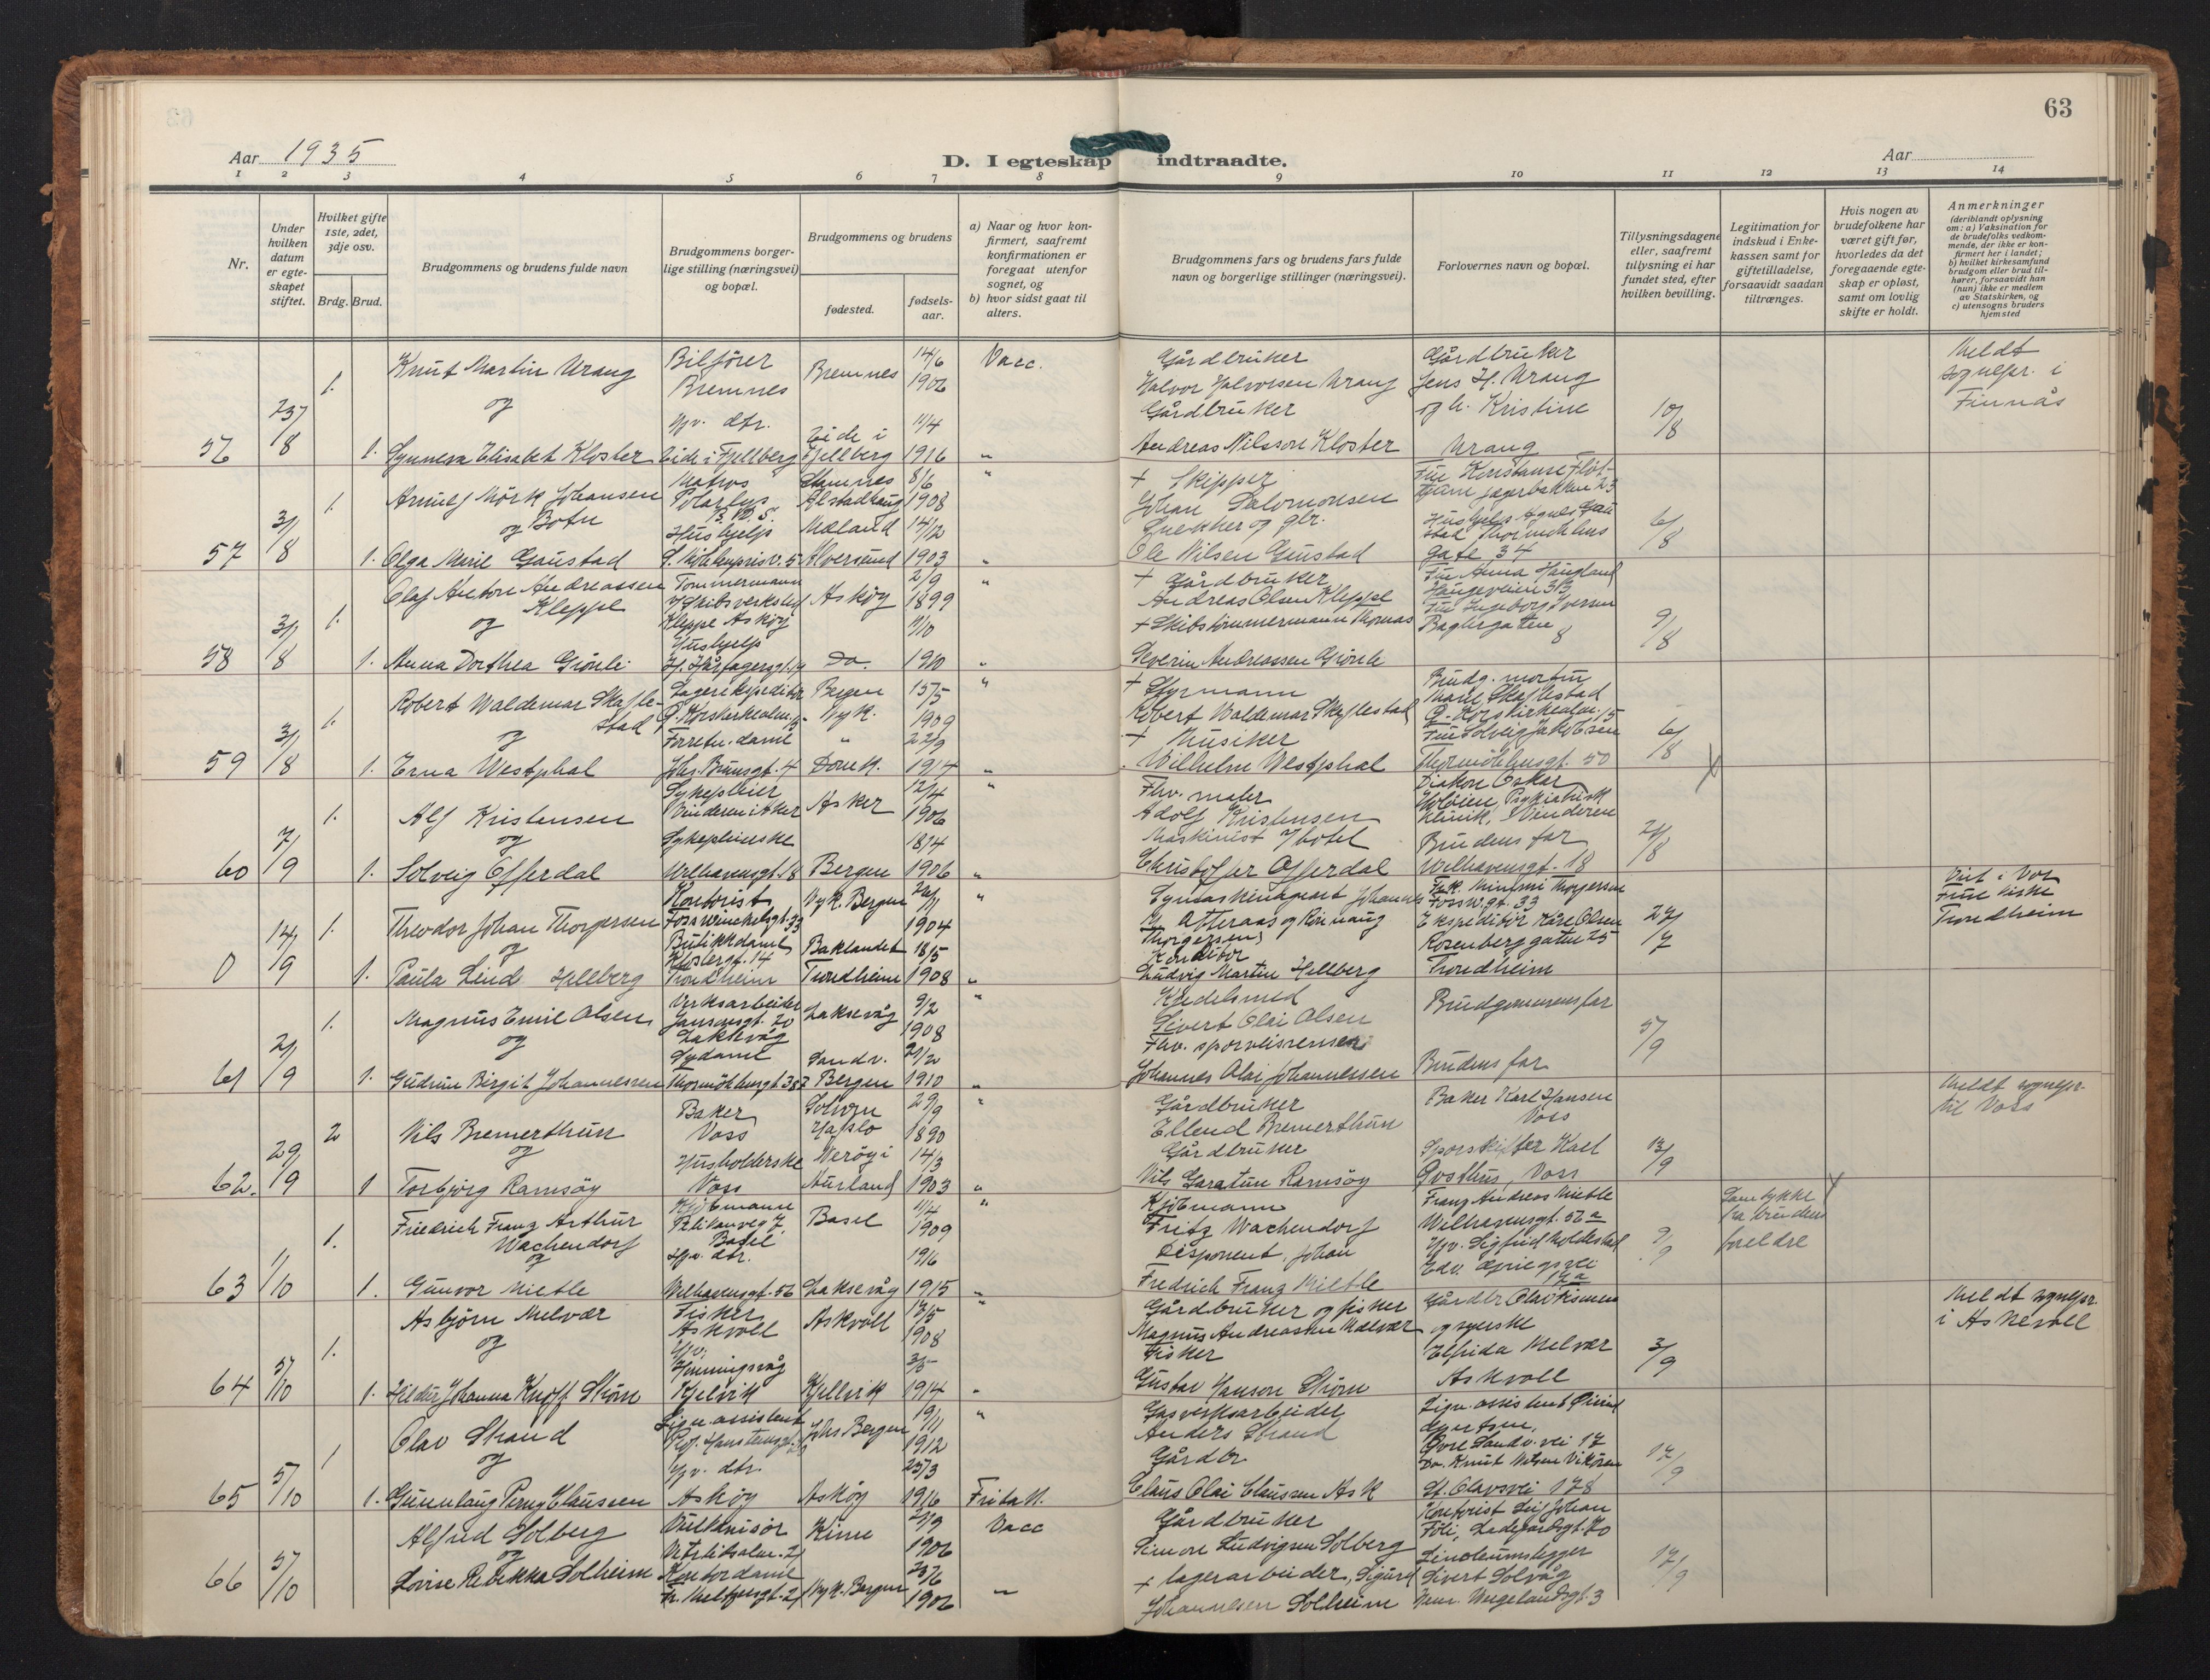 63
Aar 1935
D. I egteskap indtraadte.
Aar
1 2 3 4 5 6 7 8 9 10 11 12 13 14
Nr.
Under hvilken datum er egteskapet stiftet.
Hvilket gifte 1ste, 2det, 3dje osv.
Brdg. Brud.
Brudgommens og brudens fulde navn
Brudgommens borgerlige stilling (næringsvei) og bopæl.
Brudgommens og brudens
fødested.
fødselsaar.
a) Naar og hvor konfirmert, saafremt konfirmationen er foregaat utenfor sognet, og
b) hvor sidst gaat til alters.
Brudgommens fars og brudens fars fulde navn og borgerlige stillinger (næringsvei).
Forlovernes navn og bopæl.
Tillysningsdagene eller, saafremt tillysning ei har fundet sted, efter hvilken bevilling.
Legitimation for indskud i Enkekassen samt for giftetilladelse, forsaavidt saadan tiltrænges.
Hvis nogen av brudefolkene har været gift før, hvorledes da det foregaaende egteskap er opløst, samt om lovlig skifte er holdt.
Anmerkninger
(deriblandt oplysning om: a) Vaksination for de brudefolks vedkommende, der ikke er konfirmert her i landet; b) hvilket kirkesamfund brudgom eller brud tilhører, forsaavidt han (hun) ikke er medlem av Statskirken, og c) utensogns bruders hjemsted
56 23/8 1. Knut Martin Urang Bilfører Bremnes Bremnes 14/6 1906 Vacc. Gårdbruker Halvor Halvorsen Urang Gårdbruker Jens H. Urang og h. Kristine Urang 10/8 Meldt sognepr. i Finnås
og
1. Synneva Elisabet Kloster Hjv. dtr. Eide i Fjellberg Eide i Fjellberg 11/4 1916 " Gårdbruker Andreas Nilsson Kloster
57 31/8 1. Arnulf Mörk Johansen Botn Matros Polarlys Stamnes Alstadhaug 8/6 1908 " + Skipper Johan Salomonsen 6/8
og
1. Olga Marie Gaustad Hushjelp Mæland Alversund 14/12 1903 " Snekker og gbr. Ole Nilsen Gaustad Hushjelp Agnes Gaustad Thormöhlens gate 34
58 31/8 1. Olaf Anton Andreassen Kleppe Tømmermann v/ Skibsverksted Kleppe Askøy Askøy 2/9 1899 " + Gårdbruker Andreas Olsen Kleppe Fru Anna Haugland Haugeveien 33 9/8
og
1. Anna Dorthea Grönli Hushjelp H. Hårfagersgt. 14 Do. 11/10 1910 " + Skibstömmermann Thomas Severin Andreassen Grönli Fru Ingeborg Iversen Baglergaten 8
59 31/8 1. Robert Waldemar Skaflestad Lagerekspeditör Bergen Nyk. 15/5 1909 " + Styrmann Robert Waldemar Skaflestad Brudg. mor fru Marie Skaflestad Ø. Korskirkealm. 15 6/8
og
1. Erna Westphal Forretn. dame Johs. Brunsgt. 4 " Domk. 22/9 1914 " + Musiker Wilhelm Westphal Fru Solveig Jakobsen Thormöhlensgt. 50
60 7/9 1. Alf Kristensen Sykepleier Vinderen i Aker Asker 12/4 1906 " Fhv. maler Adolf Kristensen Diakon Oskar Psykiatrisk klinik, Vinderen 21/8
og
1. Solveig Offerdal Sykepleierske Welhavensgt. 18 Bergen 18/4 1906 " Maskinist Christoffer Offerdal Brudens far Welhavensgt. 18
0 14/9 1. Theodor Johan Thorgersen Kontorist Fosswinckelsgt. 33 Nyk. Bergen 26/11 1904 " Johannes Thorgersen Fossw.gt. 33 27/7 Viet i Vor Frue kirke Trondheim
og
1. Paula Lind Hellberg Butikkdame Klostergt. 14 Trondheim Baklandet Trondheim 18/5 1908 " Konditor Ludvig Martin Hellberg Ekspeditör Kåre Olsen Rosenborggaten 25 Trondheim
61 21/9 1. Magnus Emil Olsen Verksarbeider Jansonsgt. 20 Laksevåg Laksevåg 9/2 1908 " Kjedelsmed Sivert Olai Olsen Brudgommens far 5/9
og
1. Gudrun Birgit Johannessen Sydame Thormöhlensgt. 38 Sandv. Bergen 21/2 1910 " Fhv. sporveisrenser Johannes Olai Johannessen Brudens far
62. 29/9 2 Nils Bremerthun Baker Voss Solvorn Hafslo 29/9 1890 " Gårdbruker Ellend Bremerthun Baker Karl Hansen Voss 13/9 Meldt sognepr. til Voss
og
1 Torbjörg Ramsöy Husholderske Voss Aurland 14/3 1903 " Gårdbruker Nils Ramsöy Sporskifter Karl Voss
63 1/10 1. Friedrich Franz Arthur Wachendorf Kjöbmann Basel Basel 11/4 1909 " Kjöbmann Fritz Wachendorf Franz Andreas Mietle Welhavensgt. 56a 9/9 Samtykke fra brudens foreldre
og
1. Gunvor Mietle Hjv. dtr. Welhavensgt. 56 Laksevåg 19/6 1915 " Disponent, Johan Fredrich Franz Mietle Edv. Griegsvei 17a
64 5/10 1. Asbjörn Melvær Fisker Askvoll Askvoll 13/5 1908 " Gårdbruker og fisker Magnus Andreassen Melvær og syerske Elfrida Melvær Askvoll 3/9 Meldt sognepr. i Askvoll
og
1. Hildur Johanna Knoff Ström Hjv. Honningsvåg Kjelvik Kjelvik 3/5 1914 " Fisker Gustav Hanson Ström
65 5/10 1 Olav Strand Lign.assistent Johs. Bergen 19/11 1912 " Gasverksarbeider Anders Strand Lign.assistent Øvre Sandv.vei 17 17/9
og
1. Gunnlaug Perny Claussen Hjv. dtr. Askøy Askøy 25/3 1916 Fritatt. Gårdbr Claus Olai Claussen Ask Do. Knut Nilsen Vikören St. Olavsvei 178
66 5/10 Alfred Solberg Vulkanisör Kinn 29/9 1906 Vacc Gårdbruker Simon Ludvigsen Solberg Kontorist Leif Johan 17/9
og
Lovise Rebekka Solheim Kontordame Nyk. Bergen 23/6 1906 " + lagerarbeider, Sigurd Johannesen Solheim Linoleumslegger Sivert Solvåg Henr. Wergelandsgt. 3